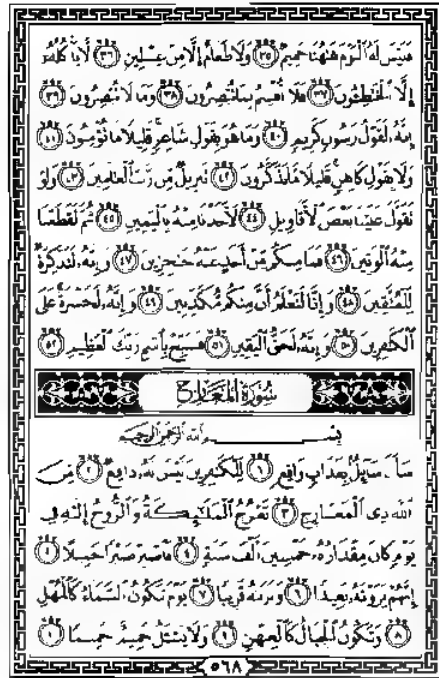 فَلَيْسَ لَهُ الْيَوْمَ هَاهُنَا حَمِيمٌ ﴿٣٥﴾ وَلَا طَعَامٌ إِلَّا مِنْ غِسْلِينٍ ﴿٣٦﴾ لَا يَأْكُلُهُ
إِلَّا الْخَاطِئُونَ ﴿٣٧﴾ فَلَا أُقْسِمُ بِمَا تُبْصِرُونَ ﴿٣٨﴾ وَمَا لَا تُبْصِرُونَ ﴿٣٩﴾
إِنَّهُ لَقَوْلُ رَسُولٍ كَرِيمٍ ﴿٤٠﴾ وَمَا هُوَ بِقَوْلِ شَاعِرٍ قَلِيلًا مَا تُؤْمِنُونَ ﴿٤١﴾
وَلَا بِقَوْلِ كَاهِنٍ قَلِيلًا مَا تَذَكَّرُونَ ﴿٤٢﴾ تَنْزِيلٌ مِنْ رَبِّ الْعَالَمِينَ ﴿٤٣﴾ وَلَوْ
تَقَوَّلَ عَلَيْنَا بَعْضَ الْأَقَاوِيلِ ﴿٤٤﴾ لَأَخَذْنَا مِنْهُ بِالْيَمِينِ ﴿٤٥﴾ ثُمَّ لَقَطَعْنَا
مِنْهُ الْوَتِينَ ﴿٤٦﴾ فَمَا مِنْكُمْ مِنْ أَحَدٍ عَنْهُ حَاجِزِينَ ﴿٤٧﴾ وَإِنَّهُ لَتَذْكِرَةٌ
لِلْمُتَّقِينَ ﴿٤٨﴾ وَإِنَّا لَنَعْلَمُ أَنَّ مِنْكُمْ مُكَذِّبِينَ ﴿٤٩﴾ وَإِنَّهُ لَحَسْرَةٌ عَلَى
الْكَافِرِينَ ﴿٥٠﴾ وَإِنَّهُ لَحَقُّ الْيَقِينِ ﴿٥١﴾ فَسَبِّحْ بِاسْمِ رَبِّكَ الْعَظِيمِ ﴿٥٢﴾
سُورَةُ الْمَعَارِجِ
بِسْمِ اللَّهِ الرَّحْمَٰنِ الرَّحِيمِ
سَأَلَ سَائِلٌ بِعَذَابٍ وَاقِعٍ ﴿١﴾ لِلْكَافِرِينَ لَيْسَ لَهُ دَافِعٌ ﴿٢﴾ مِنَ
اللَّهِ ذِي الْمَعَارِجِ ﴿٣﴾ تَعْرُجُ الْمَلَائِكَةُ وَالرُّوحُ إِلَيْهِ فِي
يَوْمٍ كَانَ مِقْدَارُهُ خَمْسِينَ أَلْفَ سَنَةٍ ﴿٤﴾ فَاصْبِرْ صَبْرًا جَمِيلًا ﴿٥﴾
إِنَّهُمْ يَرَوْنَهُ بَعِيدًا ﴿٦﴾ وَنَرَاهُ قَرِيبًا ﴿٧﴾ يَوْمَ تَكُونُ السَّمَاءُ كَالْمُهْلِ
﴿٨﴾ وَتَكُونُ الْجِبَالُ كَالْعِهْنِ ﴿٩﴾ وَلَا يَسْأَلُ حَمِيمٌ حَمِيمًا ﴿١٠﴾
٥٦٨